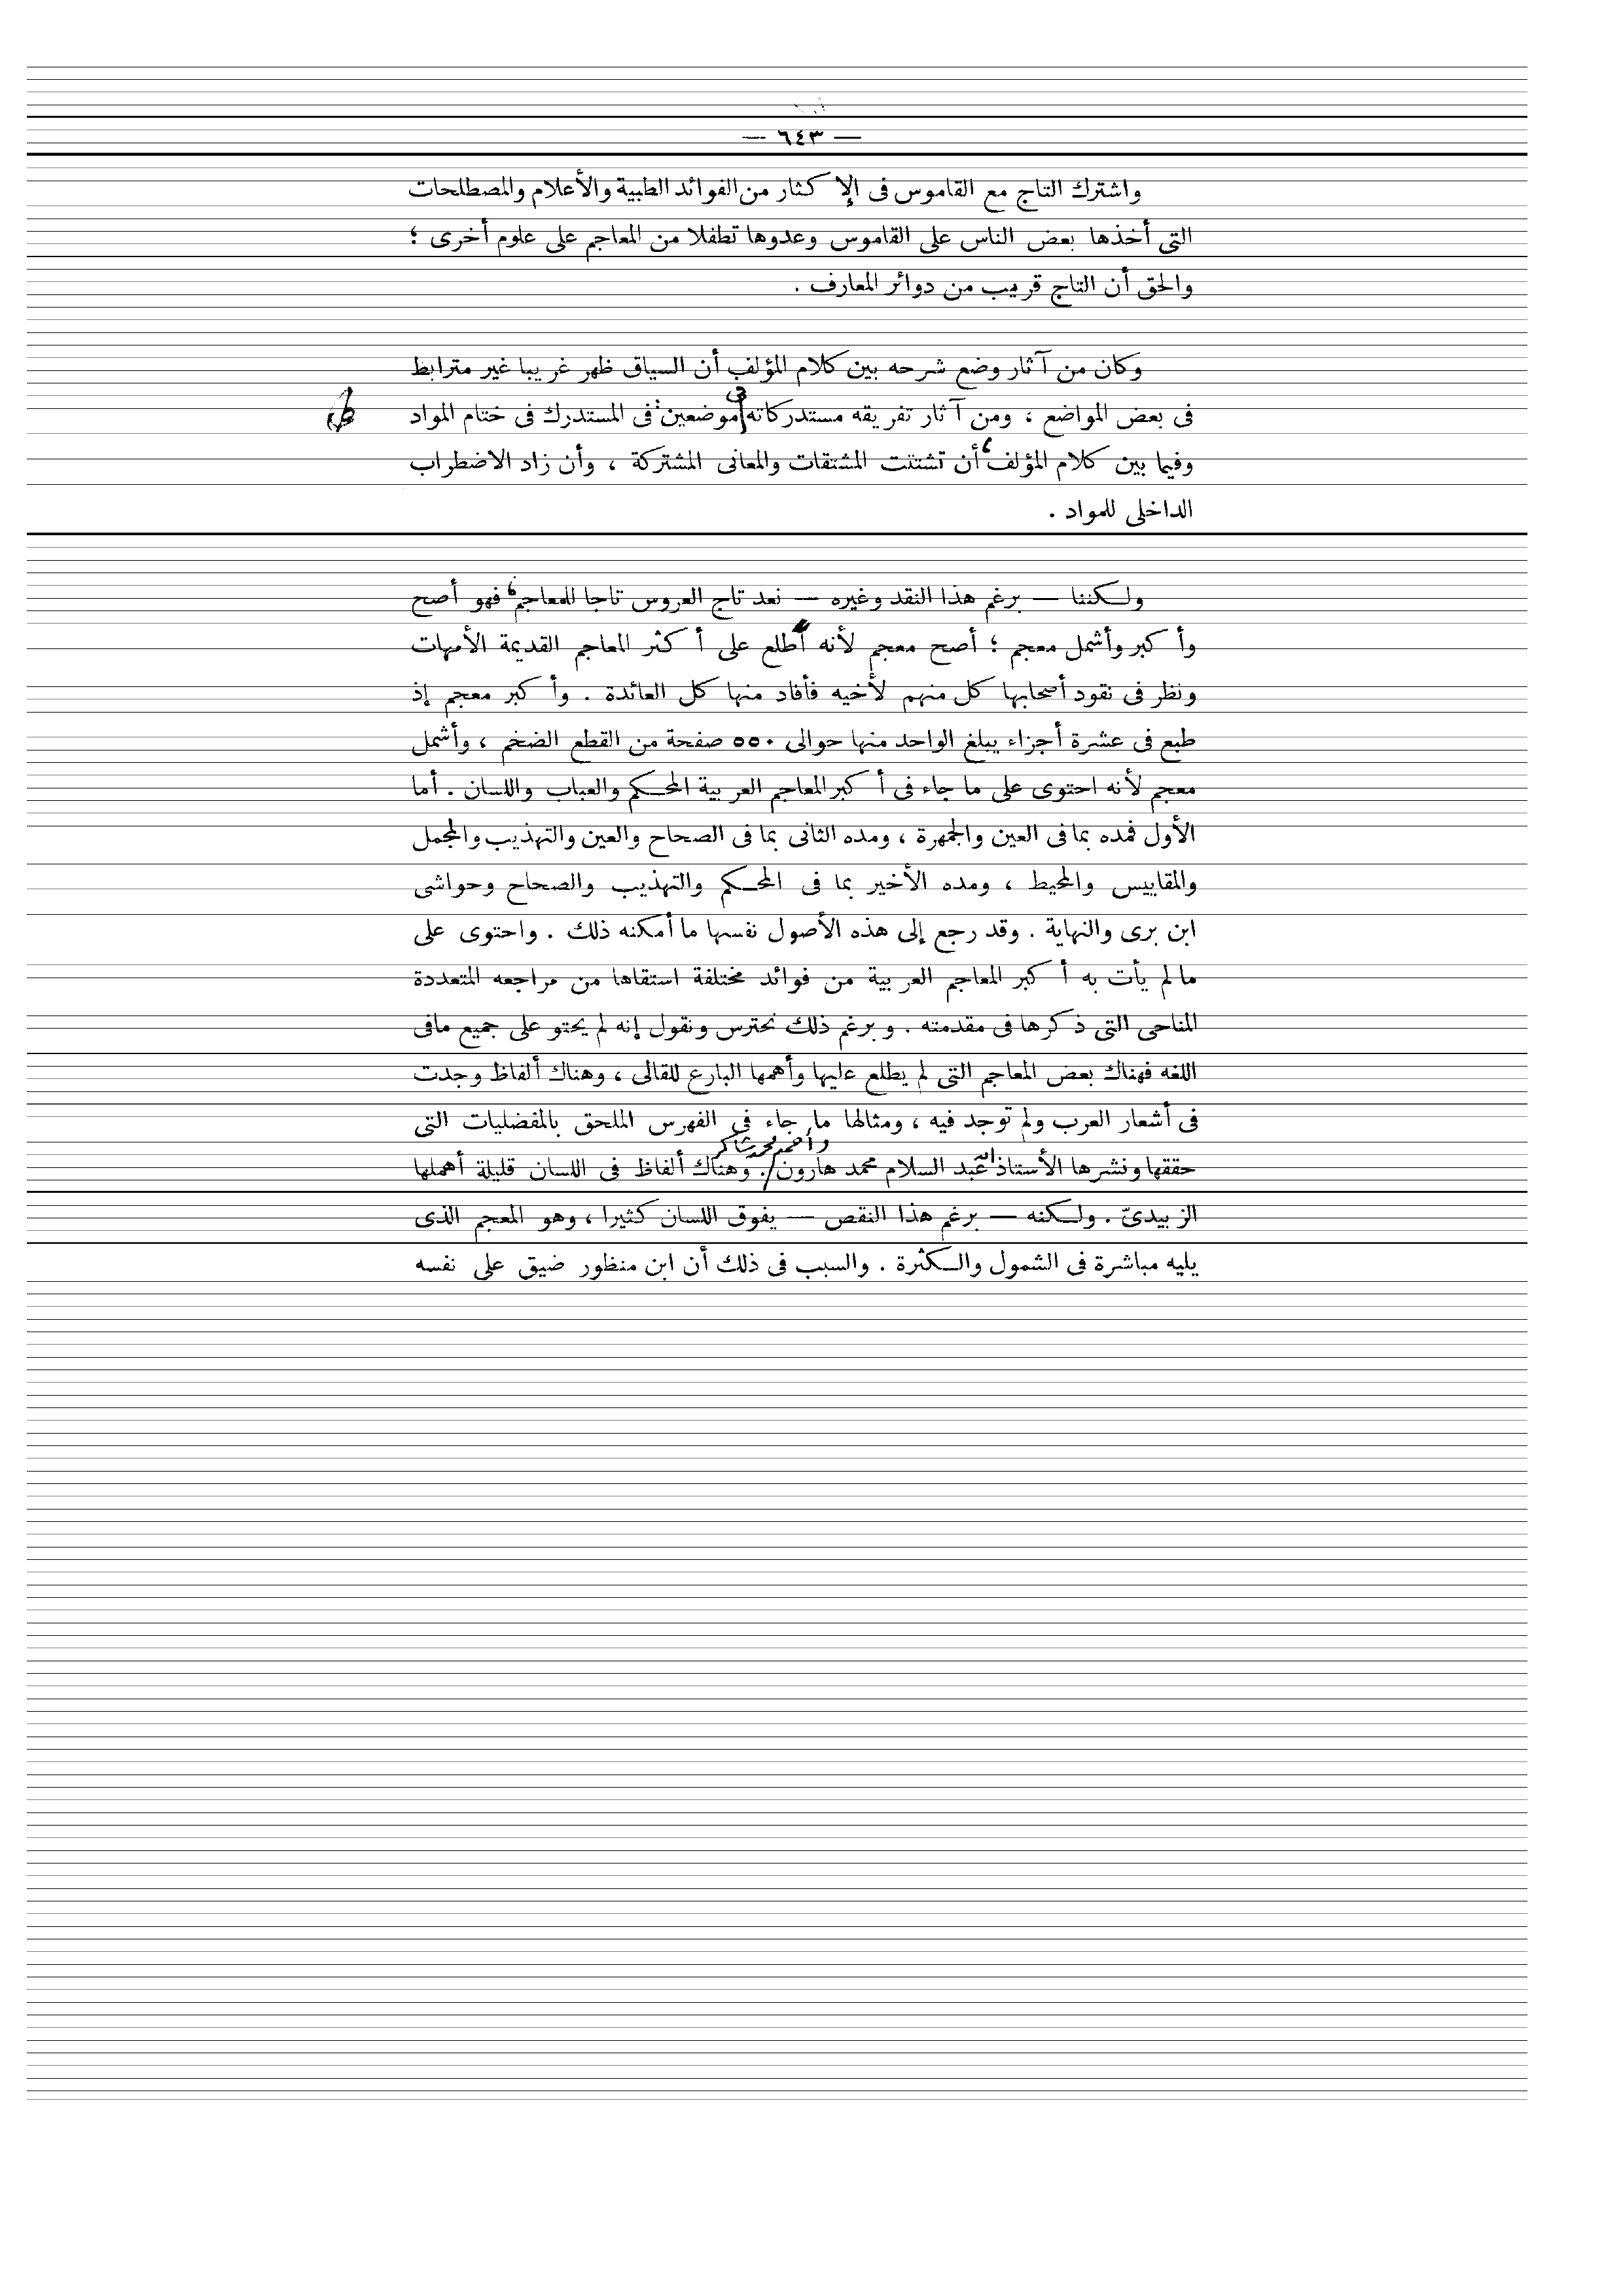 — ٦٤٣ —
واشترك التاج مع القاموس فى الإكثار من الفوائد الطبية والأعلام والمصطلحات
التى أخذها بعض الناس على القاموس وعدوها تطفلا من المعاجم على علوم أخرى ؛
والحق أن التاج قريب من دوائر المعارف .
وكان من آثار وضع شرحه بين كلام المؤلف أن السياق ظهر غريبا غير مترابط
فى بعض المواضع ، ومن آثار تفريقه مستدركاته فى موضعين : فى المستدرك فى ختام المواد
وفيما بين كلام المؤلف ، أن تشتتت المشتقات والمعانى المشتركة ، وأن زاد الاضطراب
الداخلى للمواد .
ولكننا — برغم هذا النقد وغيره — نعد تاج العروس تاجا للمعاجم ، فهو أصح
وأكبر وأشمل معجم ؛ أصح معجم لأنه اطلع على أكثر المعاجم القديمة الأمهات
ونظر فى نقود أصحابها كل منهم لأخيه فأفاد منها كل العائدة . وأكبر معجم إذ
طبع فى عشرة أجزاء يبلغ الواحد منها حوالى ٥٥٠ صفحة من القطع الضخم ، وأشمل
معجم لأنه احتوى على ما جاء فى أكبر المعاجم العربية المحكم والعباب واللسان . أما
الأول فمده بما فى العين والجمهرة ، ومده الثانى بما فى الصحاح والعين والتهذيب والمجمل
والمقاييس والمحيط ، ومده الأخير بما فى المحكم والتهذيب والصحاح وحواشى
ابن برى والنهاية . وقد رجع إلى هذه الأصول نفسها ما أمكنه ذلك . واحتوى على
ما لم يأت به أكبر المعاجم العربية من فوائد مختلفة استقاها من مراجعه المتعددة
المناحى التى ذكرها فى مقدمته . وبرغم ذلك نحترس ونقول إنه لم يحتو على جميع مافى
اللغه فهناك بعض المعاجم التى لم يطلع عليها وأهمها البارع للقالى ، وهناك ألفاظ وجدت
فى أشعار العرب ولم توجد فيه ، ومثالها ما جاء فى الفهرس الملحق بالمفضليات التى
حققها ونشرها الأستاذان عبد السلام محمد هارون وأحمد محمد شاكر . وهناك ألفاظ فى اللسان قليلة أهملها
الزبيدىّ . ولكنه — برغم هذا النقص — يفوق اللسان كثيرا ، وهو المعجم الذى
يليه مباشرة فى الشمول والكثرة . والسبب فى ذلك أن ابن منظور ضيق على نفسه